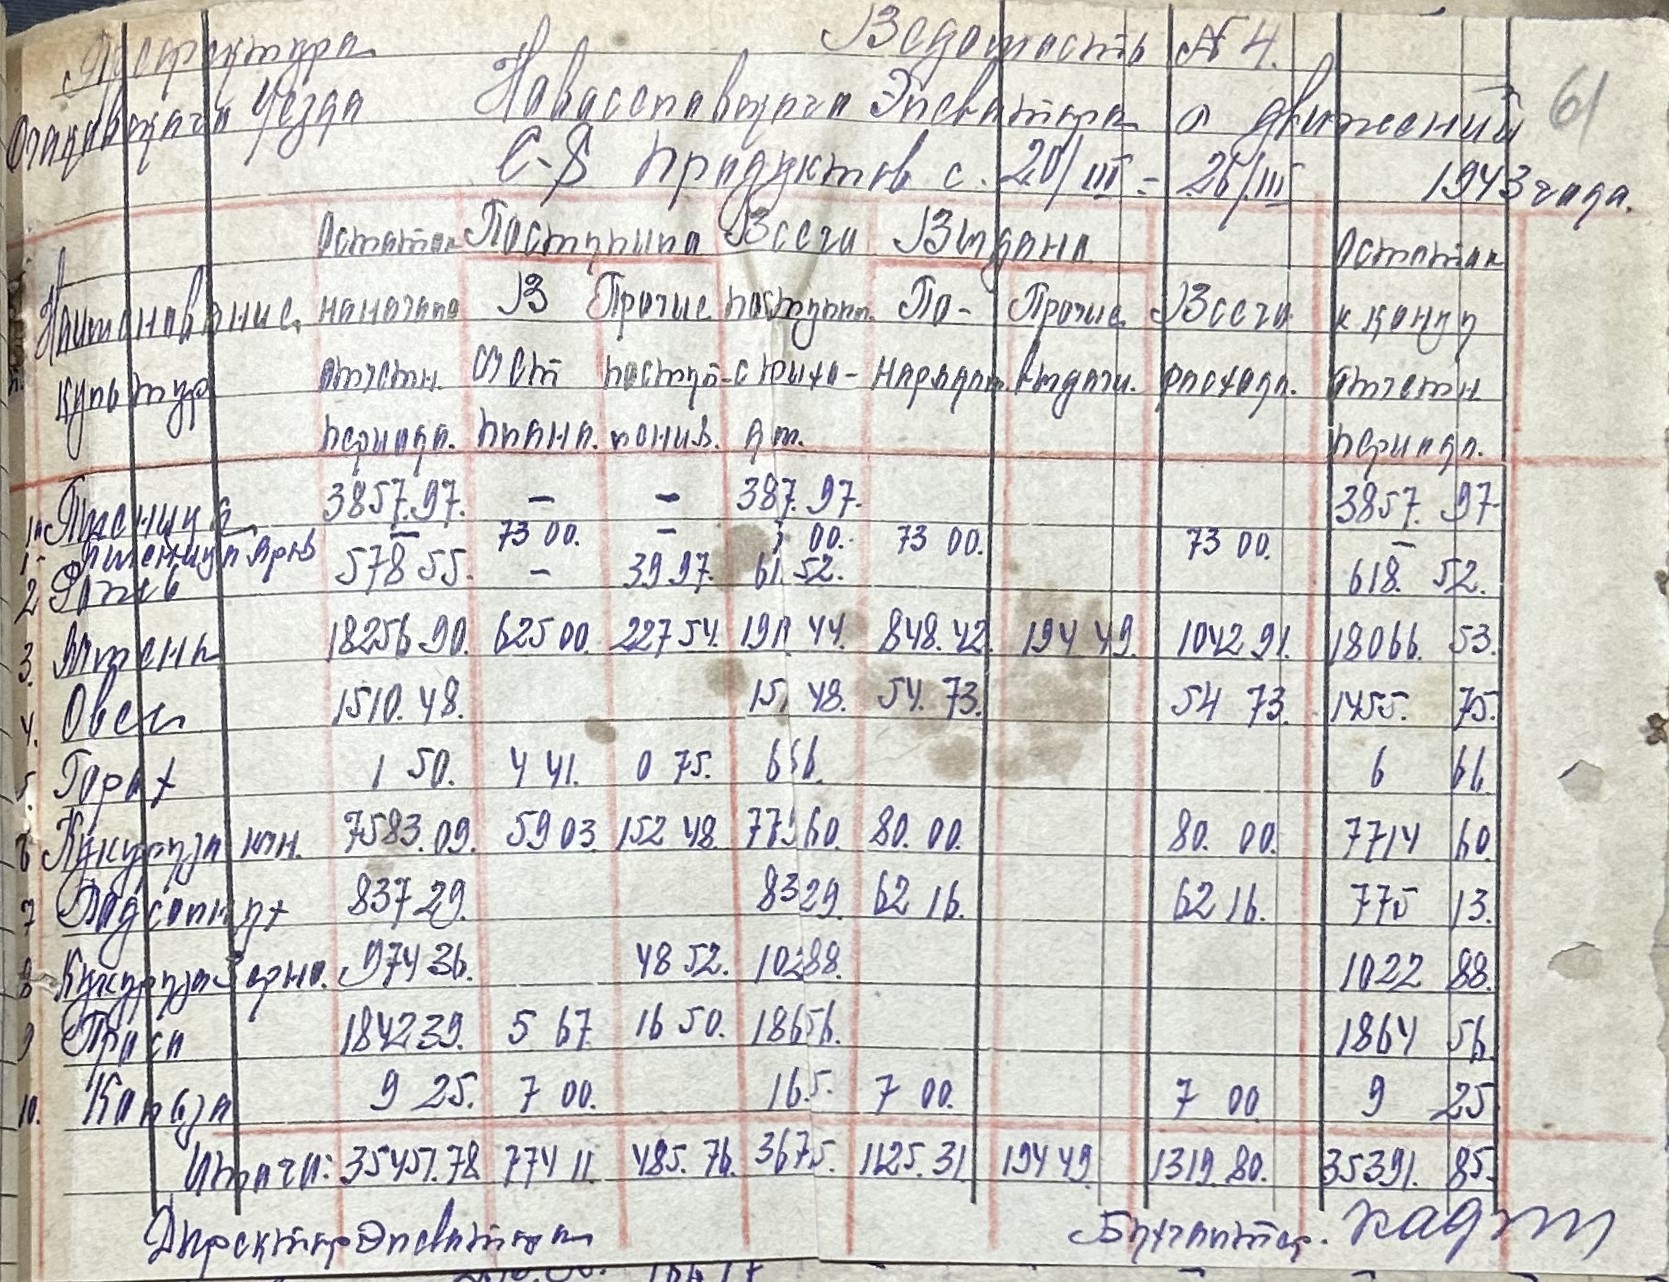 Префектура Ведомость № 4.
Очаковского Уезда Новоселовского Элеватора о движений 61
С-Х продуктов с. 20/III - 26/III 1943 года.
Остаток Поступило Всего Выдано Остаток
Наименование начало В Прочие поступл. По- Прочие Всего к концу
культур отчетн. счет поступ- с прихо- нарядам выдачи. расхода. отчетн
периода. плана. лонив. дом. периода.
1. Пшеница 3857.97. - - 387.97. 3857.97
1- Пшеница яров - 73 00. - 00. 73 00. 73 00. -
2 Рожь 578 55. - 39 97. 61 52. 618. 52.
3. Ячмень 18256.90. 625 00. 227 54. 191 44. 848.42. 194 49. 1042 91. 18066. 53.
4. Овес 1510.48. 15 48. 54. 73. 54 73. 1455. 75.
5. Горох 1 50. 4 41. 0 75. 6 66. 6 66.
6 Кукуруза кач. 7583.09. 59 03. 152 48. 779 60. 80. 00. 80. 00. 7714 60.
7 Подсолнух 837 29. 83 29. 62 16. 62 16. 775 13.
8 Кукуруза Зерно. 974 36. 48 52. 102 88. 1022 88.
9 Просо 1842 39. 5 67. 16 50. 186 56. 1864 56.
10. Кользя 9 25. 7 00. 16 5. 7 00. 7 00 9 25
Итого: 35451.78 774 11. 485. 76. 367 5. 1125. 31 194 49. 1319 80. 35391. 85.
Директор Элеватора Бухгалтер.